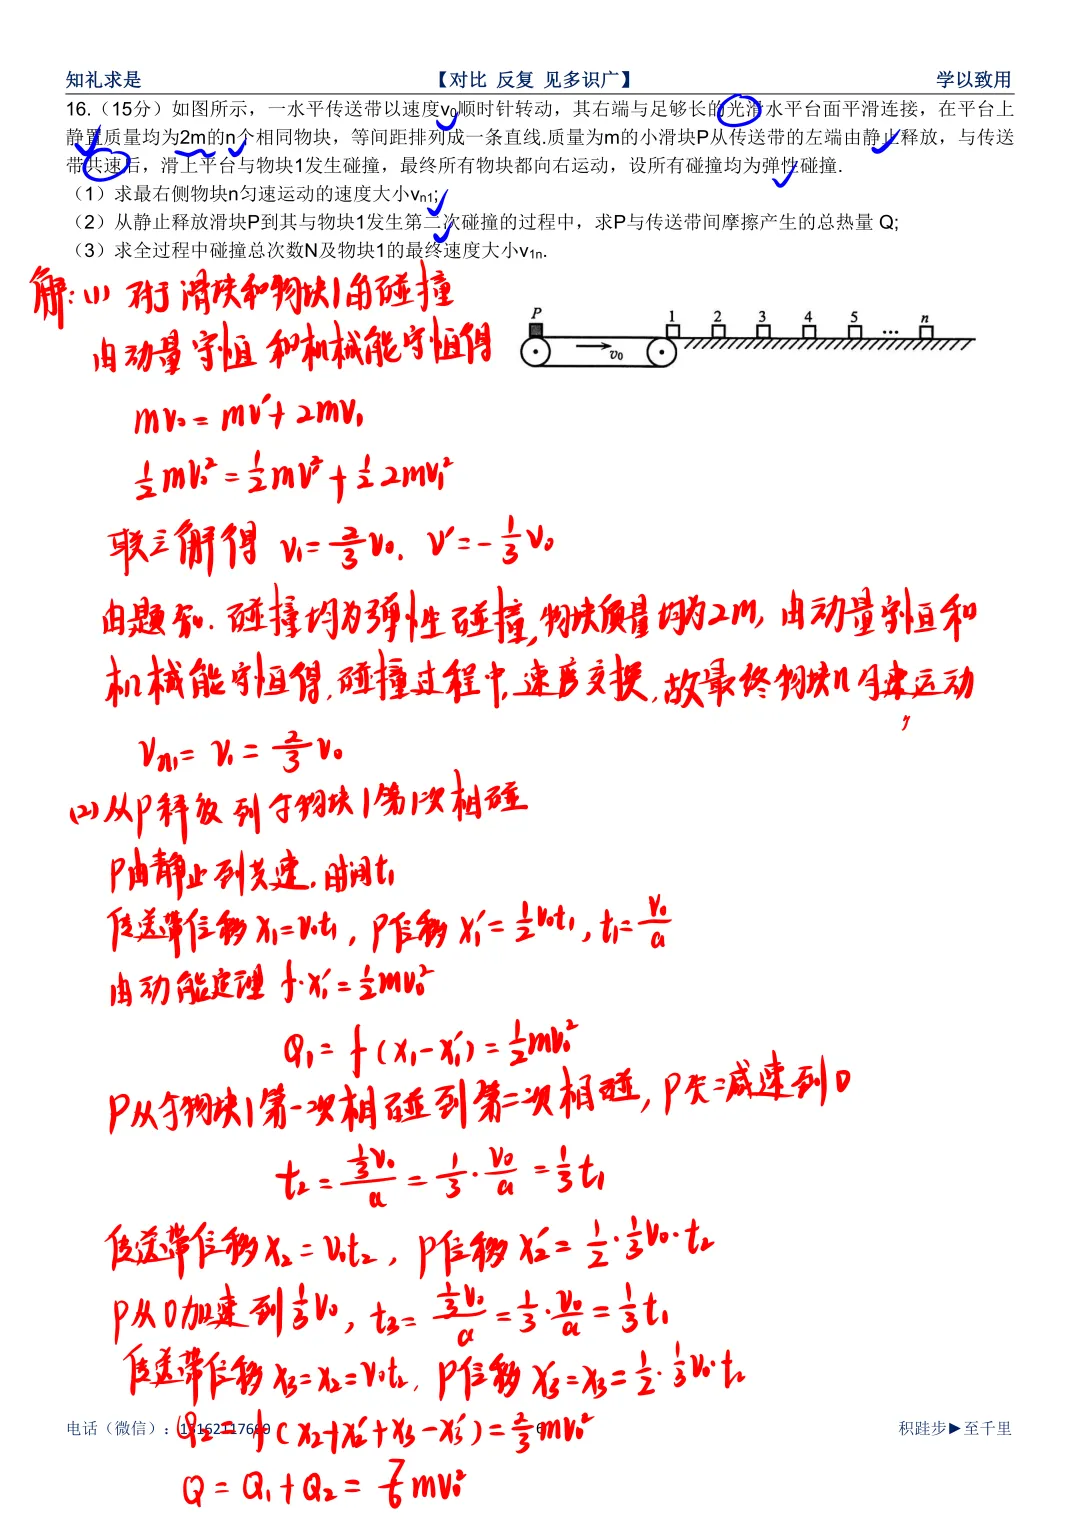 知礼求是 【对比 反复 见多识广】 学以致用
16.（15分）如图所示，一水平传送带以速度v₀顺时针转动，其右端与足够长的光滑水平台面平滑连接，在平台上
静置质量均为2m的n个相同物块，等间距排列成一条直线.质量为m的小滑块P从传送带的左端由静止释放，与传送
带共速后，滑上平台与物块1发生碰撞，最终所有物块都向右运动，设所有碰撞均为弹性碰撞.
（1）求最右侧物块n匀速运动的速度大小vn1;
（2）从静止释放滑块P到其与物块1发生第二次碰撞的过程中，求P与传送带间摩擦产生的总热量 Q;
（3）求全过程中碰撞总次数N及物块1的最终速度大小v1n.
解:(1) 对于滑块和物块1的碰撞
由动量守恒和机械能守恒得
P 1 2 3 4 5 ... n
v₀
mv₀=mv′+2mv₁
½mv₀²=½mv′²+½2mv₁²
联立解得 v₁=⅔v₀. v′=-⅓v₀
由题知.碰撞均为弹性碰撞,物块质量均为2m,由动量守恒和
机械能守恒得,碰撞过程中,速度交换,故最终物块n匀速运动
vn1=v₁=⅔v₀
(2)从P释放到于物块1第1次相碰
P由静止到共速.时间t₁
传送带位移x₁=v₀t₁, P位移x₁′=½v₀t₁, t₁=v₀/a
由动能定理 f·x₁′=½mv₀²
Q₁=f(x₁-x₁′)=½mv₀²
P从于物块1第一次相碰到第二次相碰,P先=减速到0
t₂=⅓v₀/a=⅓·v₀/a=⅓t₁
传送带位移x₂=v₀t₂, P位移x₂′=½·⅓v₀·t₂
P从0加速到⅓v₀, t₃=⅓v₀/a=⅓·v₀/a=⅓t₁
传送带位移x₃=x₂=v₀t₂, P位移x₃′=x₃=½·⅓v₀·t₂
电话（微信）: 6 积跬步►至千里
Q₂=f(x₂+x₂′+x₃-x₃′)=⅔mv₀²
Q=Q₁+Q₂=7/6mv₀²